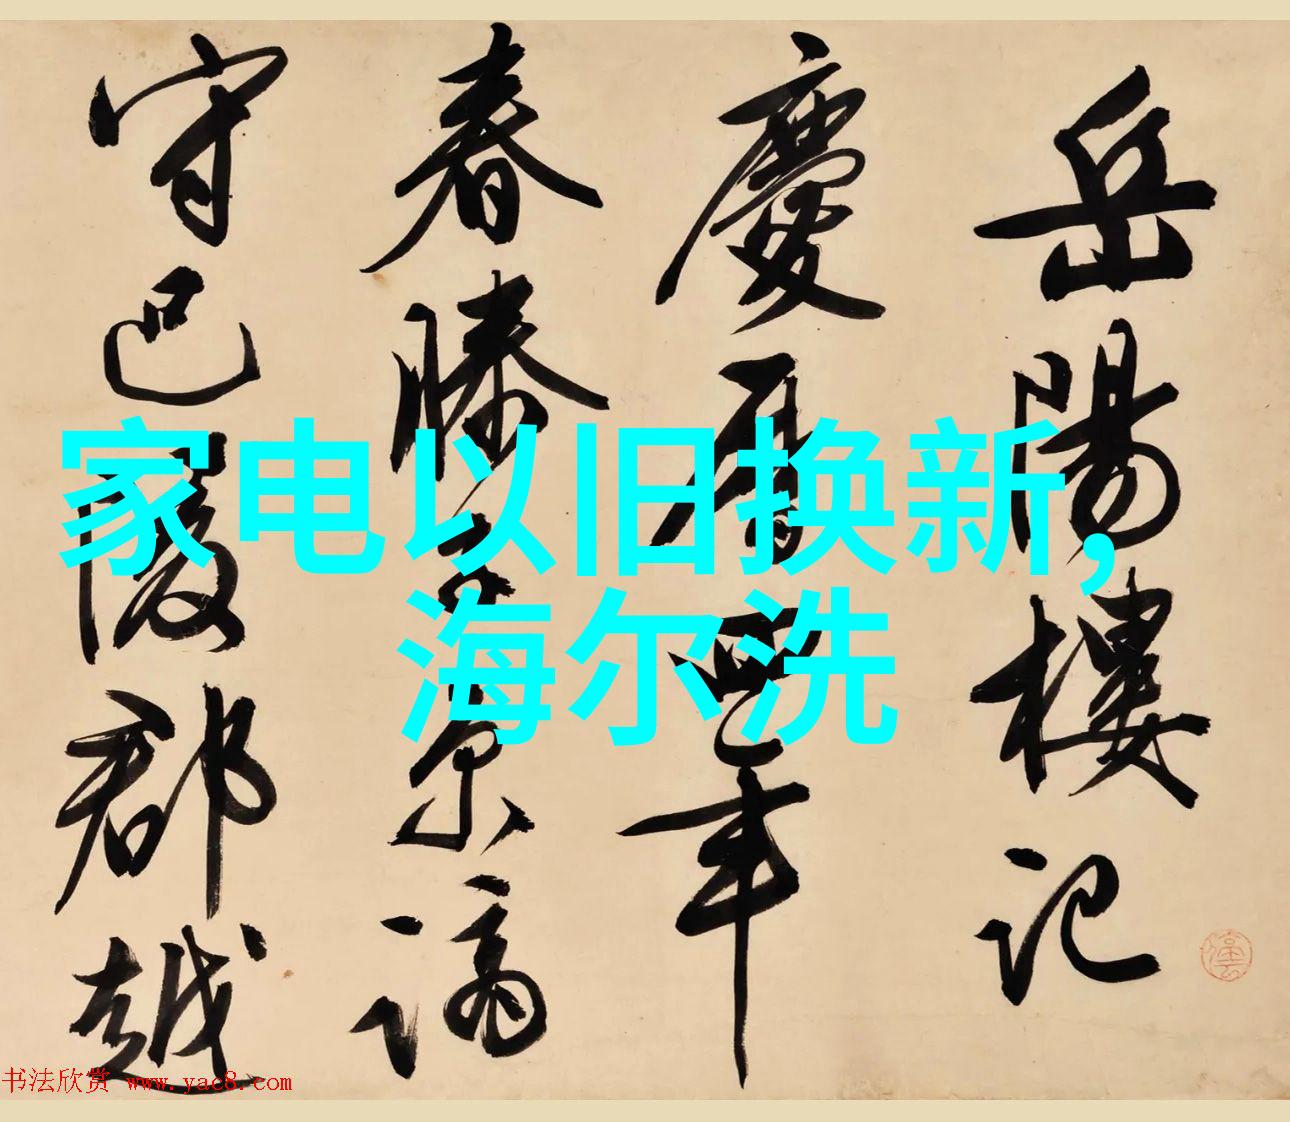 岳陽樓記
慶曆四年
春滕子京謫
守巴陵郡越
家电以旧换新,
海尔洗
书法欣赏 www.yac8.com